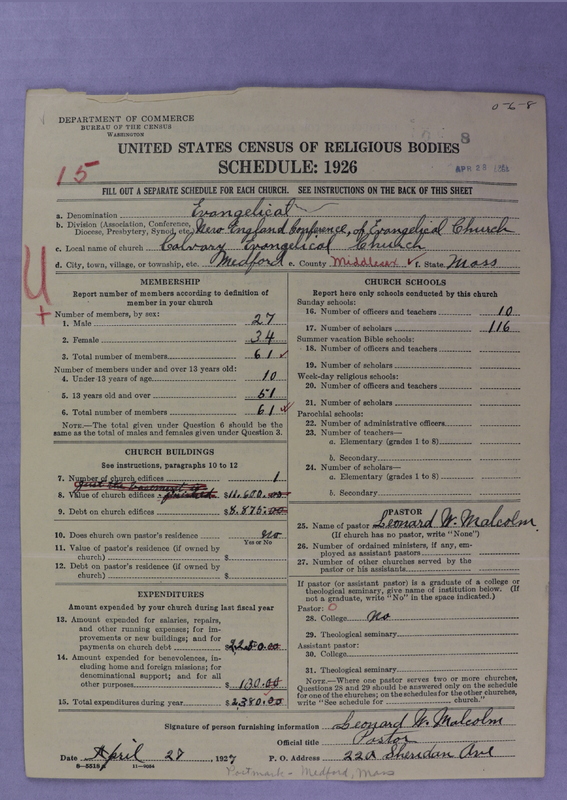 0-6-8
DEPARTMENT OF COMMERCE
BUREAU OF THE CENSUS
WASHINGTON
8
UNITED STATES CENSUS OF RELIGIOUS BODIES
APR 28
SCHEDULE: 1926
15
FILL OUT A SEPARATE SCHEDULE FOR EACH CHURCH. SEE INSTRUCTIONS ON THE BACK OF THIS SHEET
a. Denomination Evangelical
b. Division (Association, Conference, Diocese, Presbytery, Synod, etc.) New England Conference, of Evangelical Church
c. Local name of church Calvary Evangelical Church
d. City, town, village, or township, etc. Medford e. County Middlesex ✓ f. State Mass
U
+
MEMBERSHIP
Report number of members according to definition of
member in your church
Number of members, by sex:
1. Male 27
2. Female 34
3. Total number of members 61 ✓
Number of members under and over 13 years old:
4. Under 13 years of age 10
5. 13 years old and over 51
6. Total number of members 61 ✓
NOTE.—The total given under Question 6 should be
same as the total of males and females given under Question 3.
CHURCH BUILDINGS
See instructions, paragraphs 10 to 12
7. Number of church edifices 1
Just the basement is
8. Value of church edifices - finished $11,600.00
9. Debt on church edifices $8,875.00
10. Does church own pastor's residence No
Yes or No
11. Value of pastor's residence (if owned by
church) $
12. Debt on pastor's residence (if owned by
church) $
EXPENDITURES
Amount expended by your church during last fiscal year
13. Amount expended for salaries, repairs,
and other running expenses; for im-
provements or new buildings; and for
payments on church debt $2250.00
14. Amount expended for benevolences, in-
cluding home and foreign missions; for
denominational support; and for all
other purposes $130.00
15. Total expenditures during year $2,380.00
CHURCH SCHOOLS
Report here only schools conducted by this church
Sunday schools:
16. Number of officers and teachers 10
17. Number of scholars 116
Summer vacation Bible schools:
18. Number of officers and teachers
19. Number of scholars
Week-day religious schools:
20. Number of officers and teachers
21. Number of scholars
Parochial schools:
22. Number of administrative officers
23. Number of teachers—
a. Elementary (grades 1 to 8)
b. Secondary
24. Number of scholars—
a. Elementary (grades 1 to 8)
b. Secondary
PASTOR
25. Name of pastor Leonard W. Malcolm.
(If church has no pastor, write "None")
26. Number of ordained ministers, if any, em-
ployed as assistant pastors
27. Number of other churches served by the
pastor or his assistants
If pastor (or assistant pastor) is a graduate of a college or
theological seminary, give name of institution below. (If
not a graduate, write "No" in the space indicated.)
Pastor: O
28. College No
29. Theological seminary
Assistant pastor:
30. College
31. Theological seminary
NOTE.—Where one pastor serves two or more churches,
Questions 28 and 29 should be answered only on the schedule
for one of the churches; on the schedules for the other churches,
write "See schedule for church."
Signature of person furnishing information Leonard W. Malcolm
Official title Pastor
Date April 28, 1927 P. O. Address 220 Sheridan Ave
8-5518 11-9054
Postmark - Medford, Mass